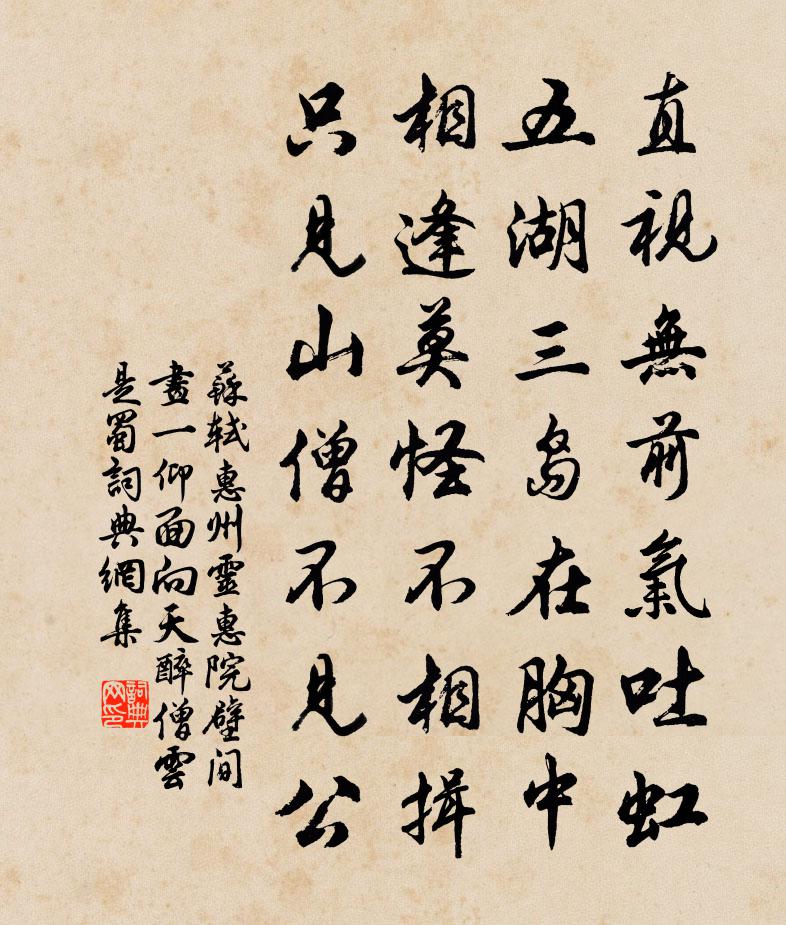 直視無前氣吐虹
五湖三島在胸中
相逢莫怪不相揖
只見山僧不見公
蘇軾惠州靈惠院壁间
畫一仰面向天醉僧雲
是蜀詞典網集
詞典网印